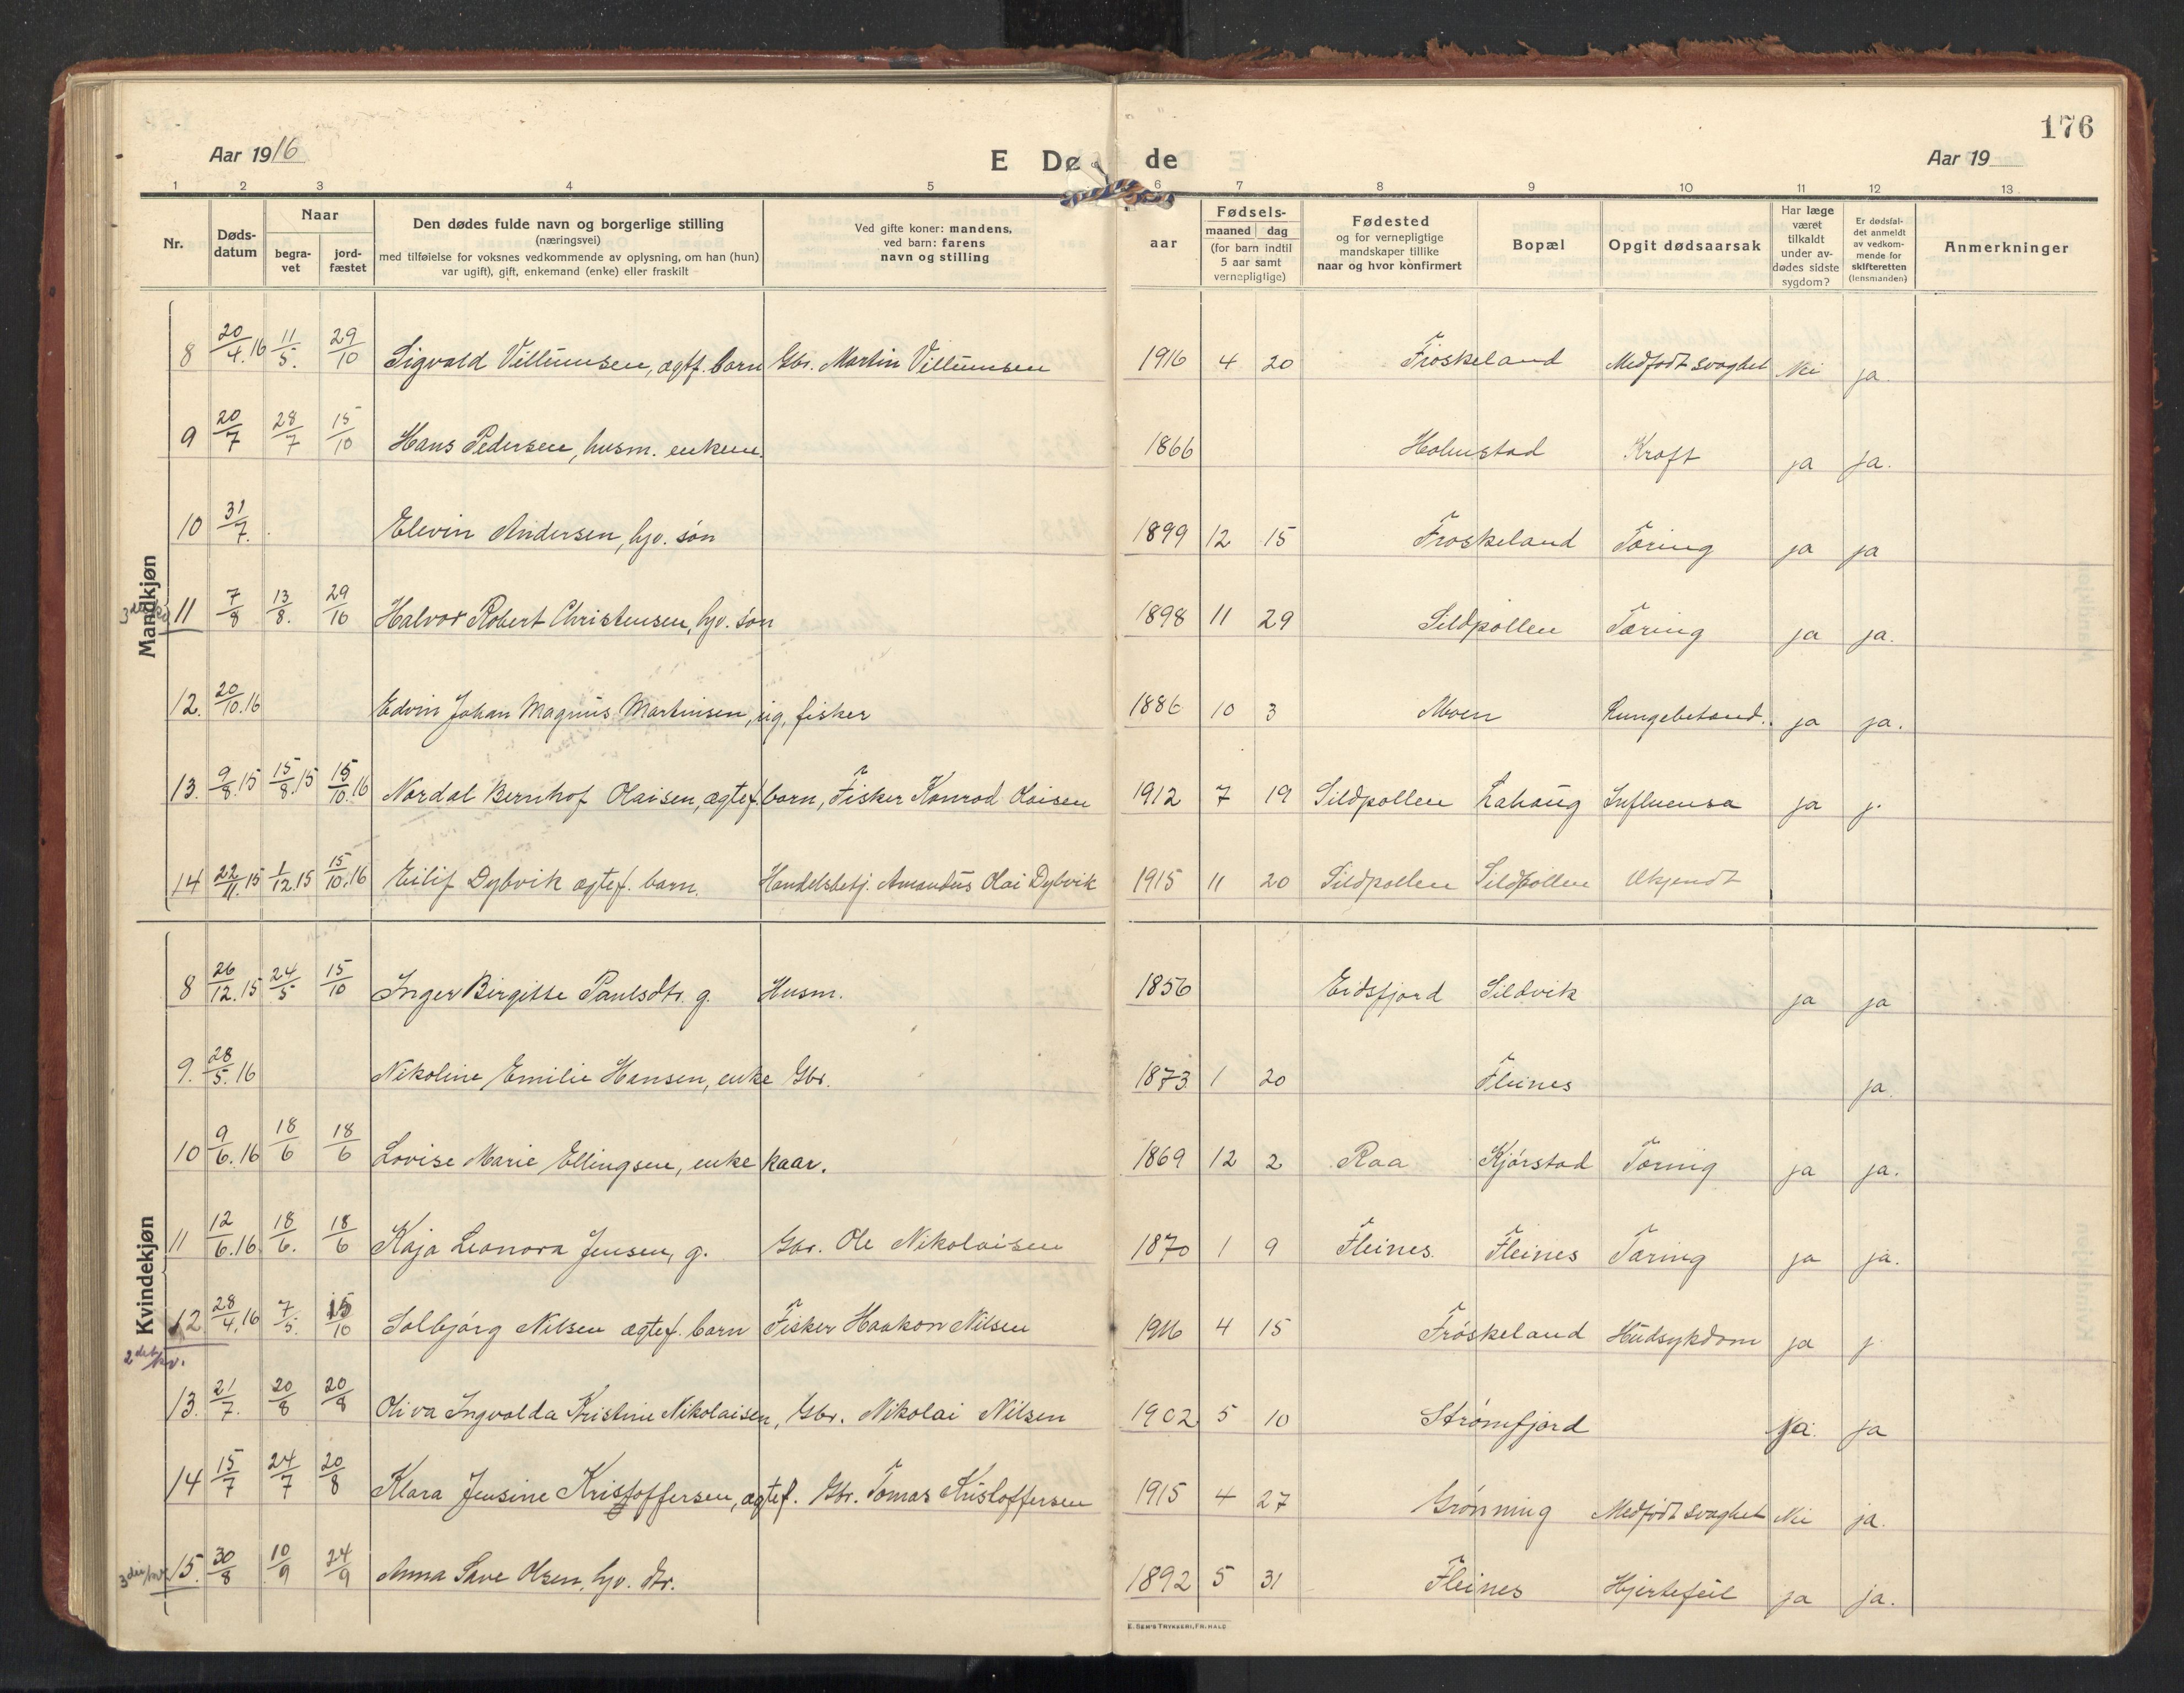 176
Aar 1916
E Dø de
Aar 19
1 2 3 4 5 6 7 8 9 10 11 12 13
Nr.
Døds-
datum
Naar
begra-
vet
jord-
fæstet
Den dødes fulde navn og borgerlige stilling
(næringsvei)
med tilføielse for voksnes vedkommende av oplysning, om han (hun)
var ugift), gift, enkemand (enke) eller fraskilt
Ved gifte koner: mandens,
ved barn: farens
navn og stilling
aar
Fødsels-
maaned dag
(for barn indtil
5 aar samt
vernepligtige)
Fødested
og for vernepligtige
mandskaper tillike
naar og hvor konfirmert
Bopæl
Opgit dødsaarsak
Har læge
været
tilkaldt
under av-
dødes sidste
sygdom?
Er dødsfal-
det anmeldt
av vedkom-
mende for
skifteretten
(lensmanden)
Anmerkninger
Mandkjøn
8 20/4.16 11/5. 29/10 Sigvald Villumsen, ægtf. barn Gbr. Martin Villumsen 1916 4 20 Froskeland Medfødt svaghet Nei ja.
9 20/7 28/7 15/10 Hans Pedersen, husm. enkem. 1866 Holmstad Kræft ja ja.
10 31/7. Elevin Andersen, hjv. søn 1899 12 15 Froskeland Tæring ja ja
11 7/8 13/8. 29/10 Halvor Robert Christensen, hjv. søn 1898 11 29 Sildpollen Tæring ja ja.
12. 20/10.16 Edvin Johan Magnus Martinsen, ug, fisker 1886 10 3 Moen Lungebetænd. ja ja.
13. 9/8.15 15/8.15 15/10.16 Nordal Bernhof Olaisen, ægtef. barn, Fisker Konrad Olaisen 1912 7 19 Sildpollen Lahaug Influensa ja j.
14 22/11.15 1/12.15 15/10.16 Eilif Dybvik ægtef. barn. Handelsbetj. Amandus Olai Dybvik 1915 11 20 Sildpollen Sildpollen Ukjendt
Kvindekjøn
8 26/12.15 24/5 15/10 Inger Birgitte Paulsdtr. g. Husm. 1856 Eidsfjord Sildvik ja ja
9. 28/5.16 Nikoline Emilie Hansen, enke Gbr. 1873 1 20 Fleines ja.
10 9/6.16 18/6 18/6 Lovise Marie Ellingsen, enke kaar. 1869 12 2 Raa Kjørstad Tæring ja ja.
11 12/6.16 18/6. 18/6 Kaja Leonora Jensen, g. Gbr. Ole Nikolaisen 1870 1 9 Fleines. Fleines Tæring ja ja.
12 28/4.16 7/5. 15/10 Solbjørg Nilsen ægtef. barn Fisker Haakon Nilsen 1916 4 15 Frøskeland Hudsykdom ja j.
2det kv.
13. 21/7. 20/8 20/8 Oliva Ingvalda Kristine Nikolaisen, Gbr. Nikolai Nilsen 1902 5 10 Strømfjord ja ja
14 15/7 24/7 20/8 Klara Jensine Kristoffersen, ægtef. Gbr. Tomas Kristoffersen 1915 4 27 Grønning Medfødt svaghet Nei ja.
15. 30/8 10/9 24/9 Anna Save Olsen, hjv. dtr. 1892 5 31 Fleines Hjertefeil ja ja.
E. SEM'S TRYKKERI, FR.HALD